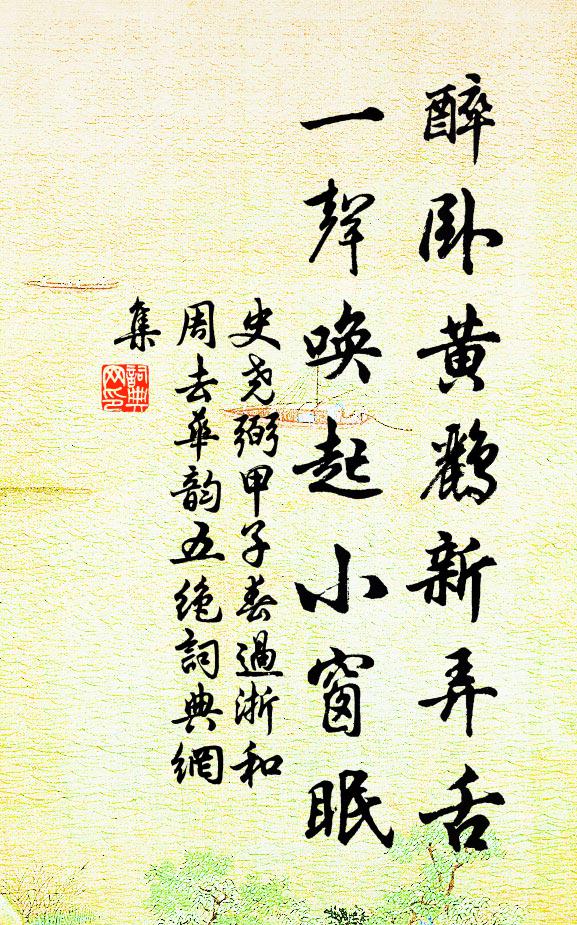 醉卧黄鸝新弄舌
一聲唤起小窗眠
史尧弼甲子春過浙和
周去華韵五绝詞典網
集
詞典
网印